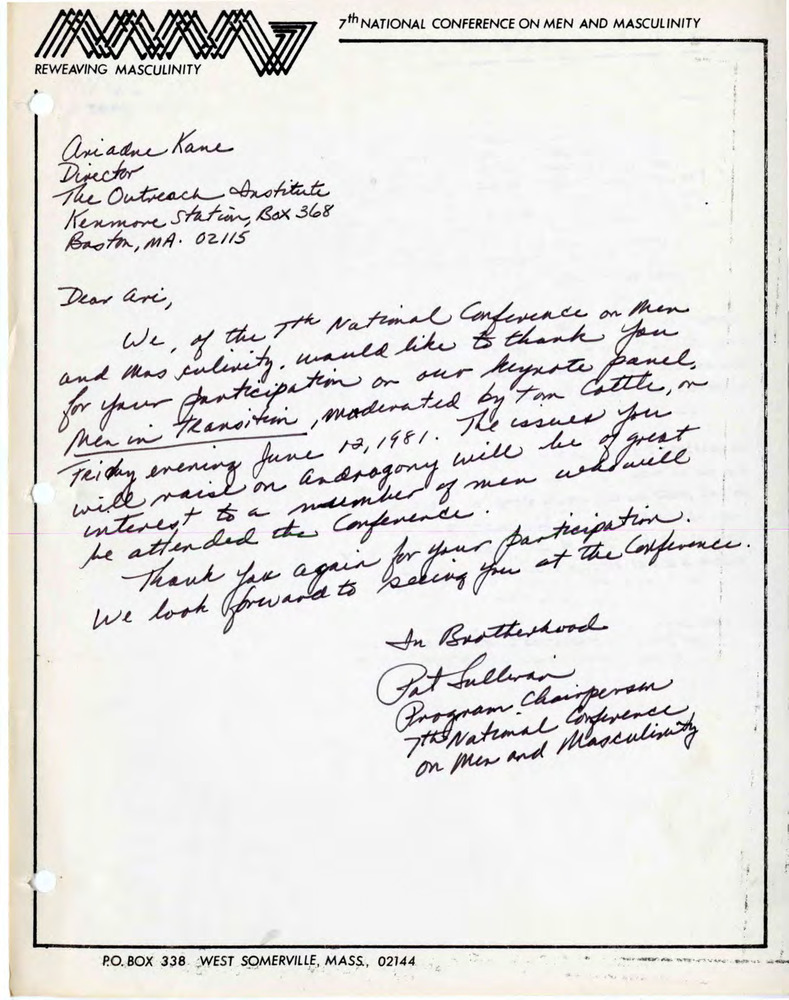 7th NATIONAL CONFERENCE ON MEN AND MASCULINITY
REWEAVING MASCULINITY
Ariadne Kane
Director
The Outreach Institute
Kenmore Station, Box 368
Boston, MA. 02115
Dear Ari,
We, of the 7th National Conference on Men
and Masculinity, would like to thank you
for your participation on our keynote panel,
Men in Transition, moderated by Tom Cottle, on
Friday evening June 12, 1981. The issues you
will raise on androgony will be of great
interest to a number of men who will
be attended the Conference.
Thank you again for your participation.
We look forward to seeing you at the Conference.
In Brotherhood
Pat Sullivan
Program Chairperson
7th National Conference
on Men and Masculinity
P.O. BOX 338 WEST SOMERVILLE, MASS., 02144